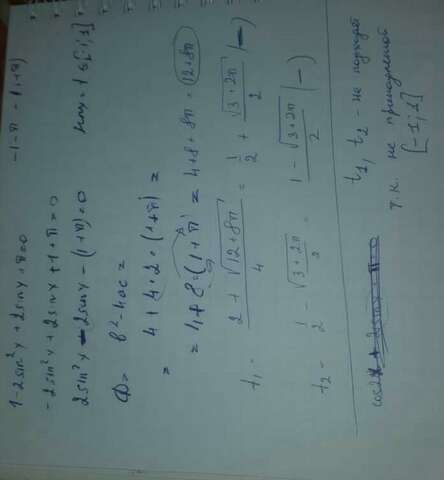 1 - 2sin²x + 2sinx + π = 0
-2sin²x + 2sinx + 1 + π = 0
2sin²x - 2sinx - (1+π) = 0
D = b² - 4ac =
= 4 + 4 · 2 · (1+π) =
= 4 + 8 · (1+π) = 4+8+8π = 12+8π
t₁ = 2 + √12+8π / 4 = 1/2 + √3+2π / 2 (-)
t₂ = 1/2 - √3+2π / 2 = 1 - √3+2π / 2 (-)
t₁, t₂ - не подходят
т.к. не принадлежат
[-1; 1]